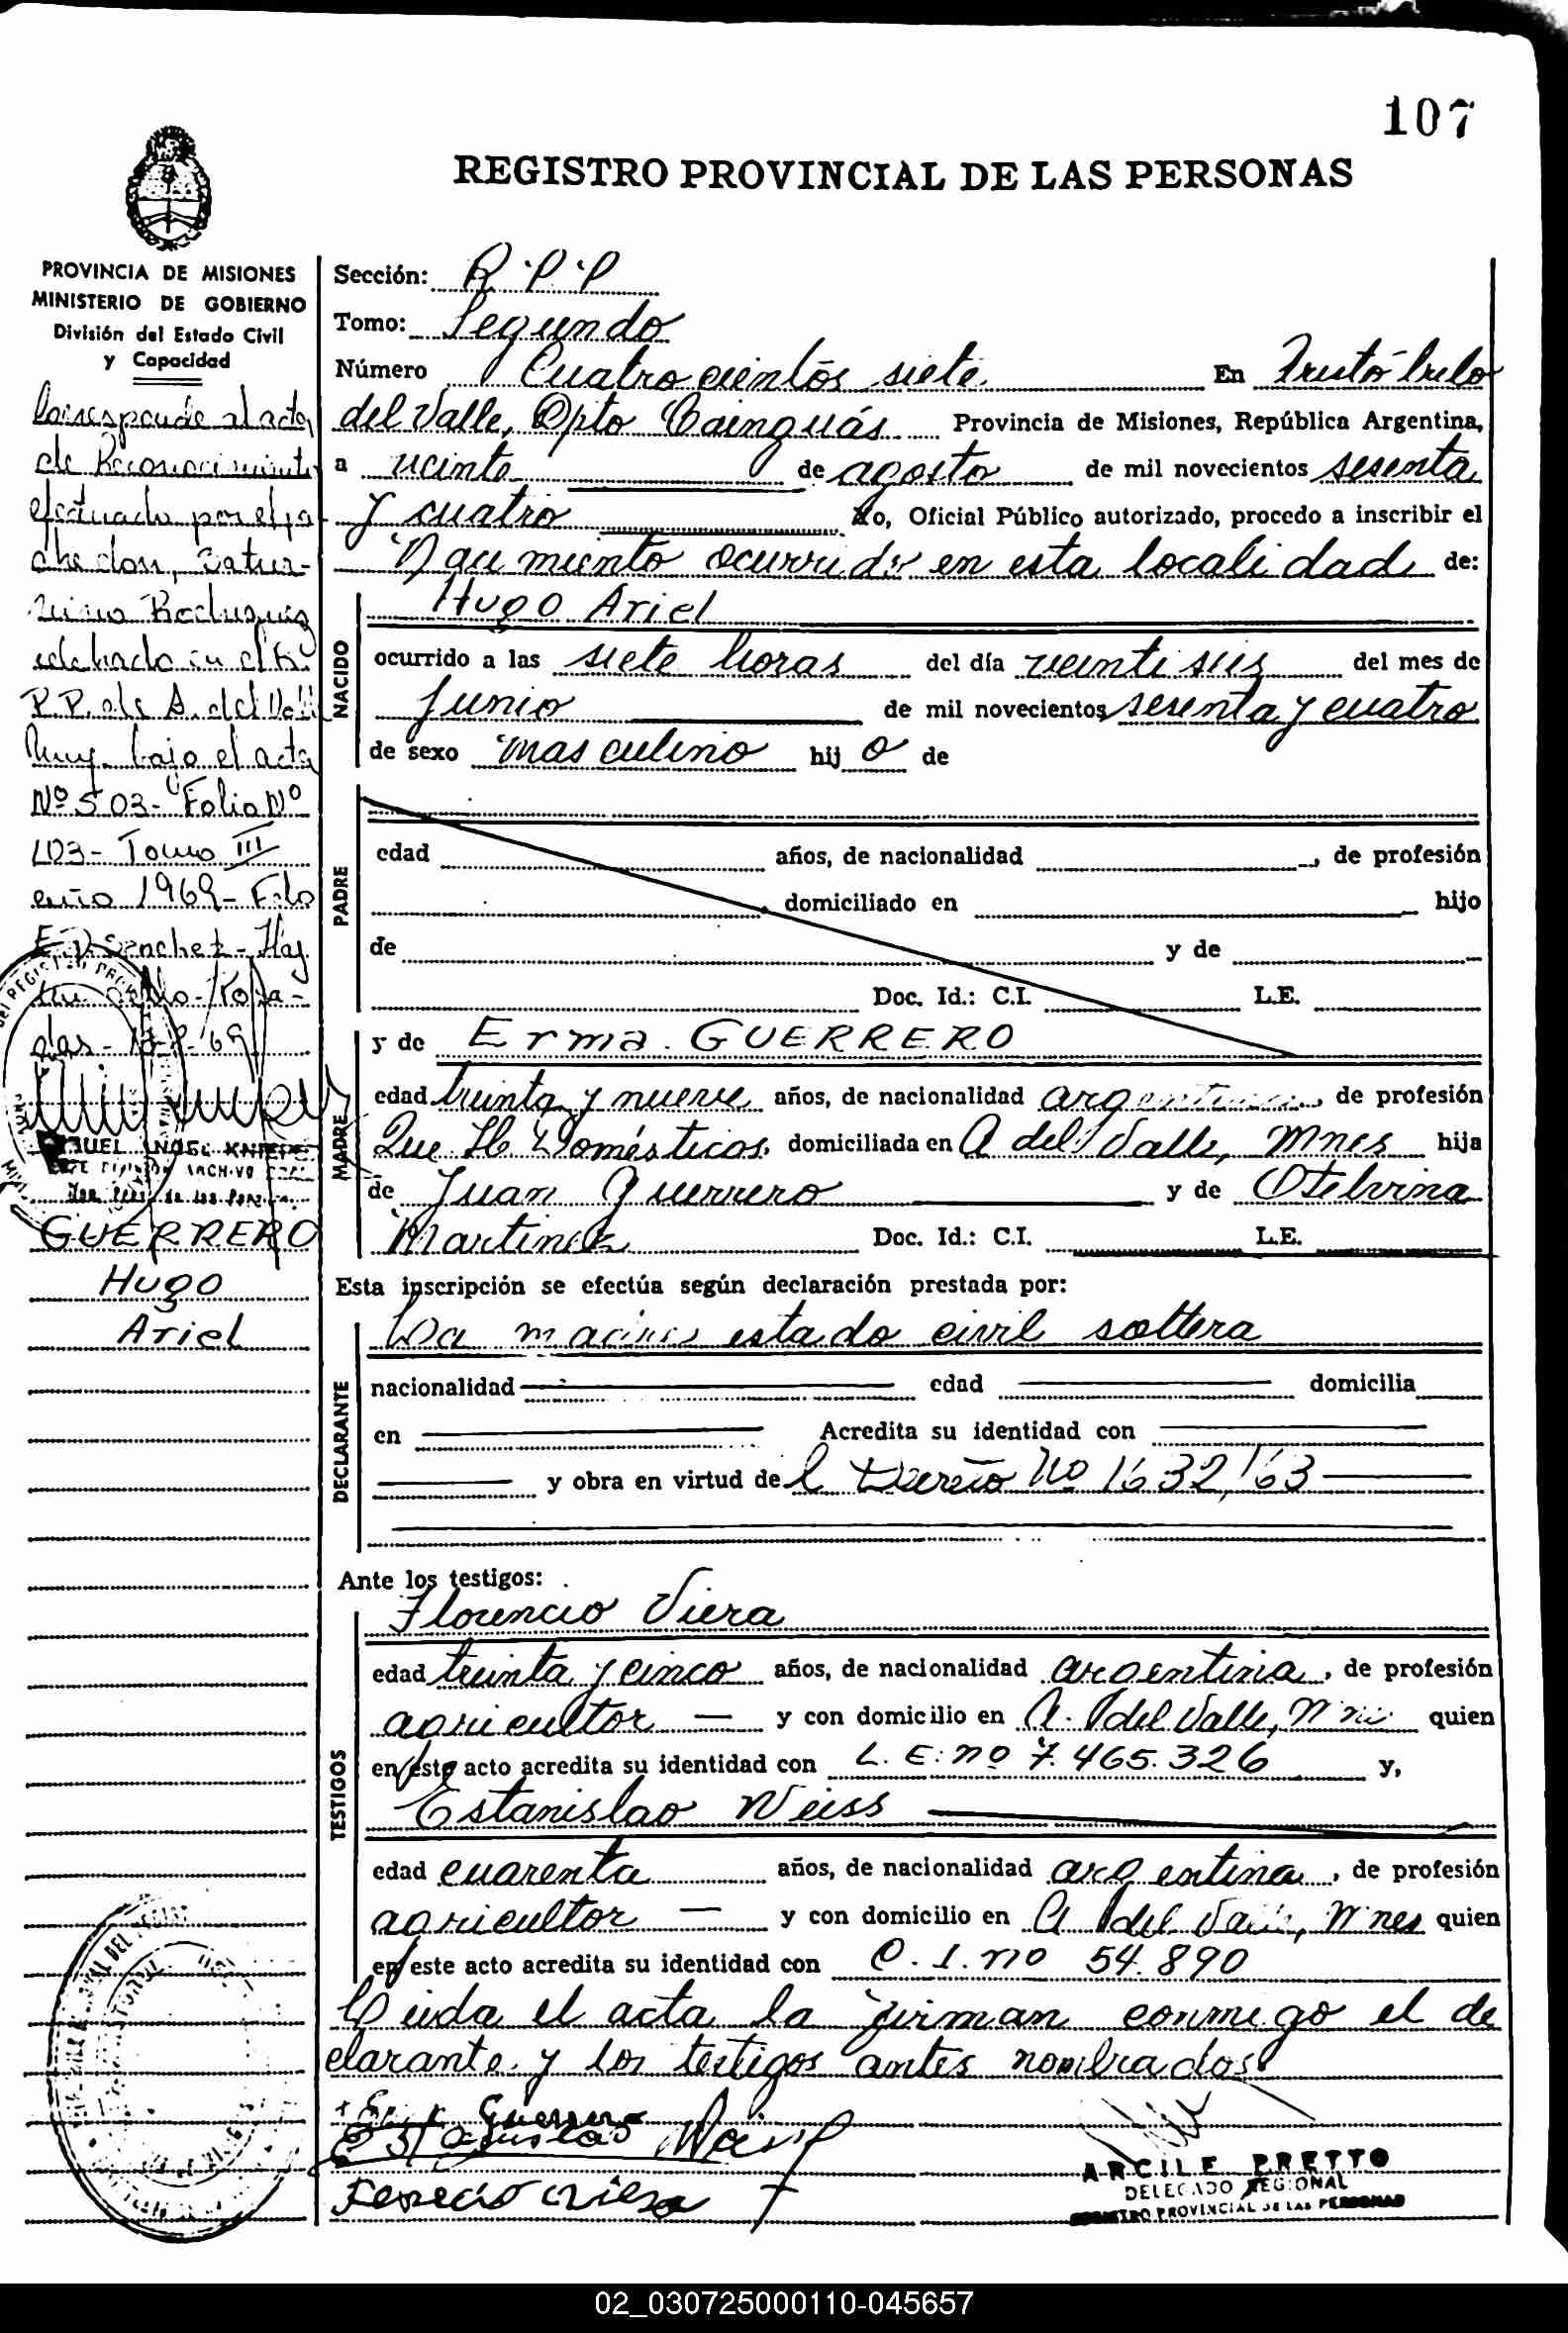 107
REGISTRO PROVINCIAL DE LAS PERSONAS
PROVINCIA DE MISIONES
MINISTERIO DE GOBIERNO
División del Estado Civil
y Capacidad
Corresponde al acta
de Reconocimiento
efectuado por el pa-
dre don, Satur-
nino Rodriguez
celebrado en el R.
P.P. de A. del Valle
Mnes. bajo el acta
Nº 503- Folio Nº
103- Tomo III
año 1969- Fdo
Sanchez- Hay
un sello- Posa-
das-
GUERRERO
Hugo
Ariel
Sección: R.P.P
Tomo: Segundo
Número Cuatrocientos siete En
del Valle, Dpto Cainguás Provincia de Misiones, República Argentina,
a veinte de agosto de mil novecientos sesenta
y cuatro Yo, Oficial Público autorizado, procedo a inscribir el
Nacimiento ocurrido en esta localidad de:
NACIDO
Hugo Ariel
ocurrido a las siete horas del día veintiseis del mes de
junio de mil novecientos sesenta y cuatro
de sexo masculino hij o de
PADRE
edad años, de nacionalidad , de profesión
domiciliado en hijo
de y de
Doc. Id.: C.I. L.E.
MADRE
y de Erma GUERRERO
edad treinta y nueve años, de nacionalidad argentina, de profesión
Que H. Domésticos, domiciliada en A del Valle, Mnes hija
de Juan Guerrero y de
Martinez Doc. Id.: C.I. L.E.
Esta inscripción se efectúa según declaración prestada por:
DECLARANTE
La madre estado civil soltera
nacionalidad edad domicilia
en Acredita su identidad con
y obra en virtud de l Decreto No 1632/63
Ante los testigos:
TESTIGOS
Florencio Viera
edad treinta y cinco años, de nacionalidad argentina, de profesión
agricultor — y con domicilio en A. del Valle, Mnes quien
en este acto acredita su identidad con L. E. nº 7.465.326 y,
Estanislao Weiss
edad cuarenta años, de nacionalidad argentina, de profesión
agricultor — y con domicilio en A del Valle, Mnes quien
en este acto acredita su identidad con C. I. nº 54.890
Leida el acta la firman conmigo el de
clarante y los testigos antes nombrados
Guerrero
ARCILE PRETTO
DELEGADO REGIONAL
REGISTRO PROVINCIAL DE LAS PERSONAS
02_030725000110-045657